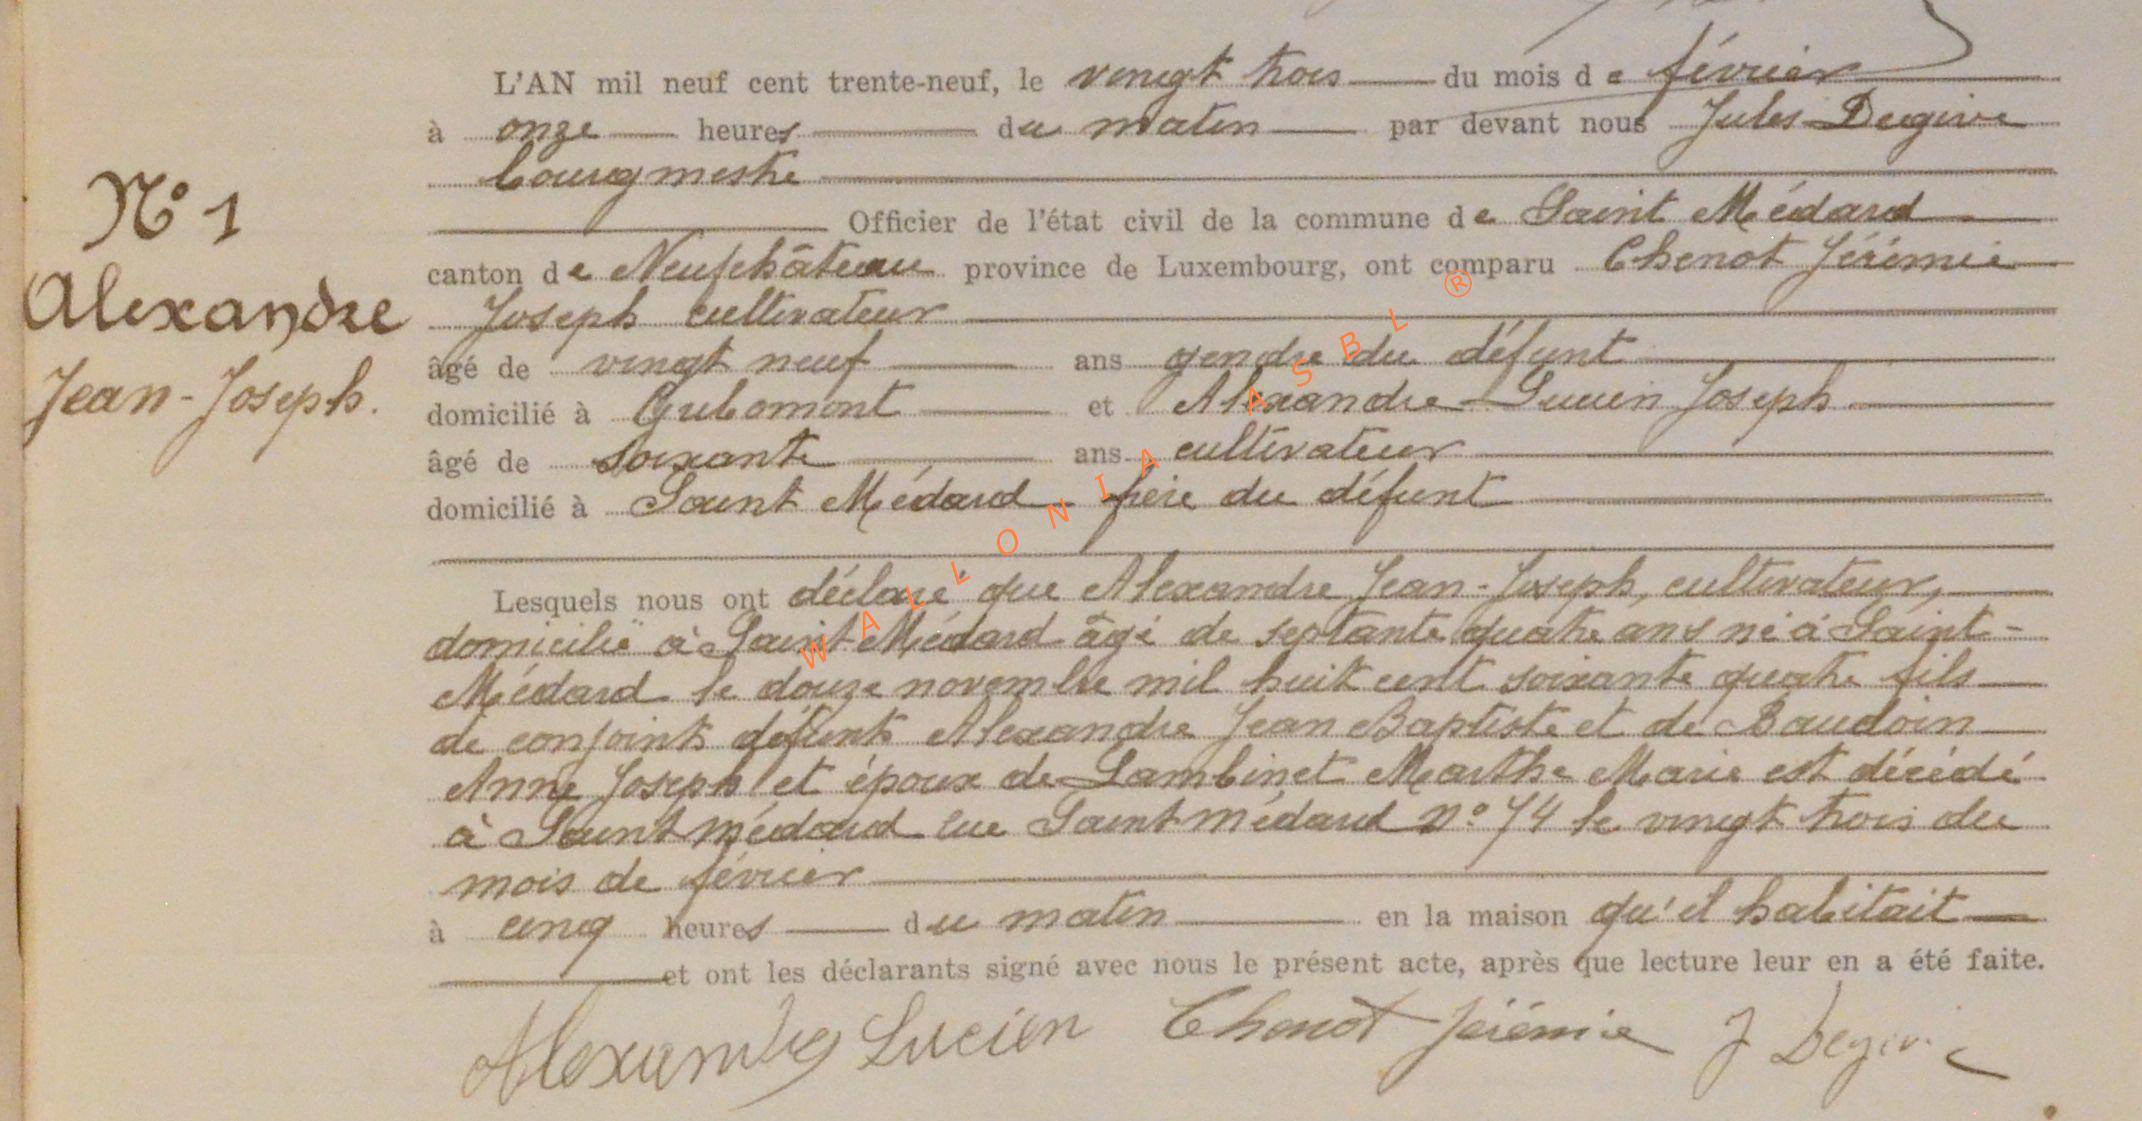 N° 1
Alexandre
Jean-Joseph.
L'AN mil neuf cent trente-neuf, le vingt trois du mois de février
à onze heures du matin par devant nous Jules Degive
bourgmestre
Officier de l'état civil de la commune de Saint Médard
canton de Neufchâteau province de Luxembourg, ont comparu Chenot Jérémie
Joseph cultivateur
âgé de vingt neuf ans gendre du défunt
domicilié à Gribomont et Alexandre Lucien Joseph
âgé de soixante ans cultivateur
domicilié à Saint Médard frère du défunt
Lesquels nous ont déclaré que Alexandre Jean-Joseph, cultivateur,
domicilié à Saint Médard âgé de septante quatre ans né à Saint-
Médard le douze novembre mil huit cent soixante quatre fils
de conjoints défunts Alexandre Jean Baptiste et de Baudoin
Anne Joseph et époux de Lambinet Marthe Marie est décédé
à Saint médard rue Saint médard n° 74 le vingt trois du
mois de février
à cinq heures du matin en la maison qu'il habitait
et ont les déclarants signé avec nous le présent acte, après que lecture leur en a été faite.
Alexandre Lucien Chenot Jérémie J Degive
WALLONIA ASBL ®